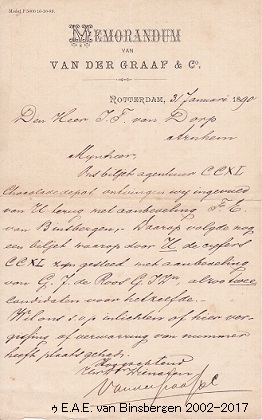 MEMORANDUM
VAN
VAN DER GRAAF & Co.
ROTTERDAM, 31 Januari 1890
Den Heer J. F. van Dorp
Arnhem
Mynheer,
Ons biljet agentuur CCXI
Chocoladedepot ontvingen wy ingevuld
van U terug met aanbeveling F. E.
van Binsbergen, Daarop volgde nog
een biljet waarop door U de cyfers
CCXI zyn gesteld met aanbeveling
van G. J. de Roos G.JWzn, alzoo twee
candidaten voor hetzelfde.
Wil ons s.v.p. inlichten of hier ver-
gissing of verwarring van nummer
heeft plaats gehad.
Hoogachtend
Van der Graaf & Co
E.A.E. van Binsbergen 2002-2017